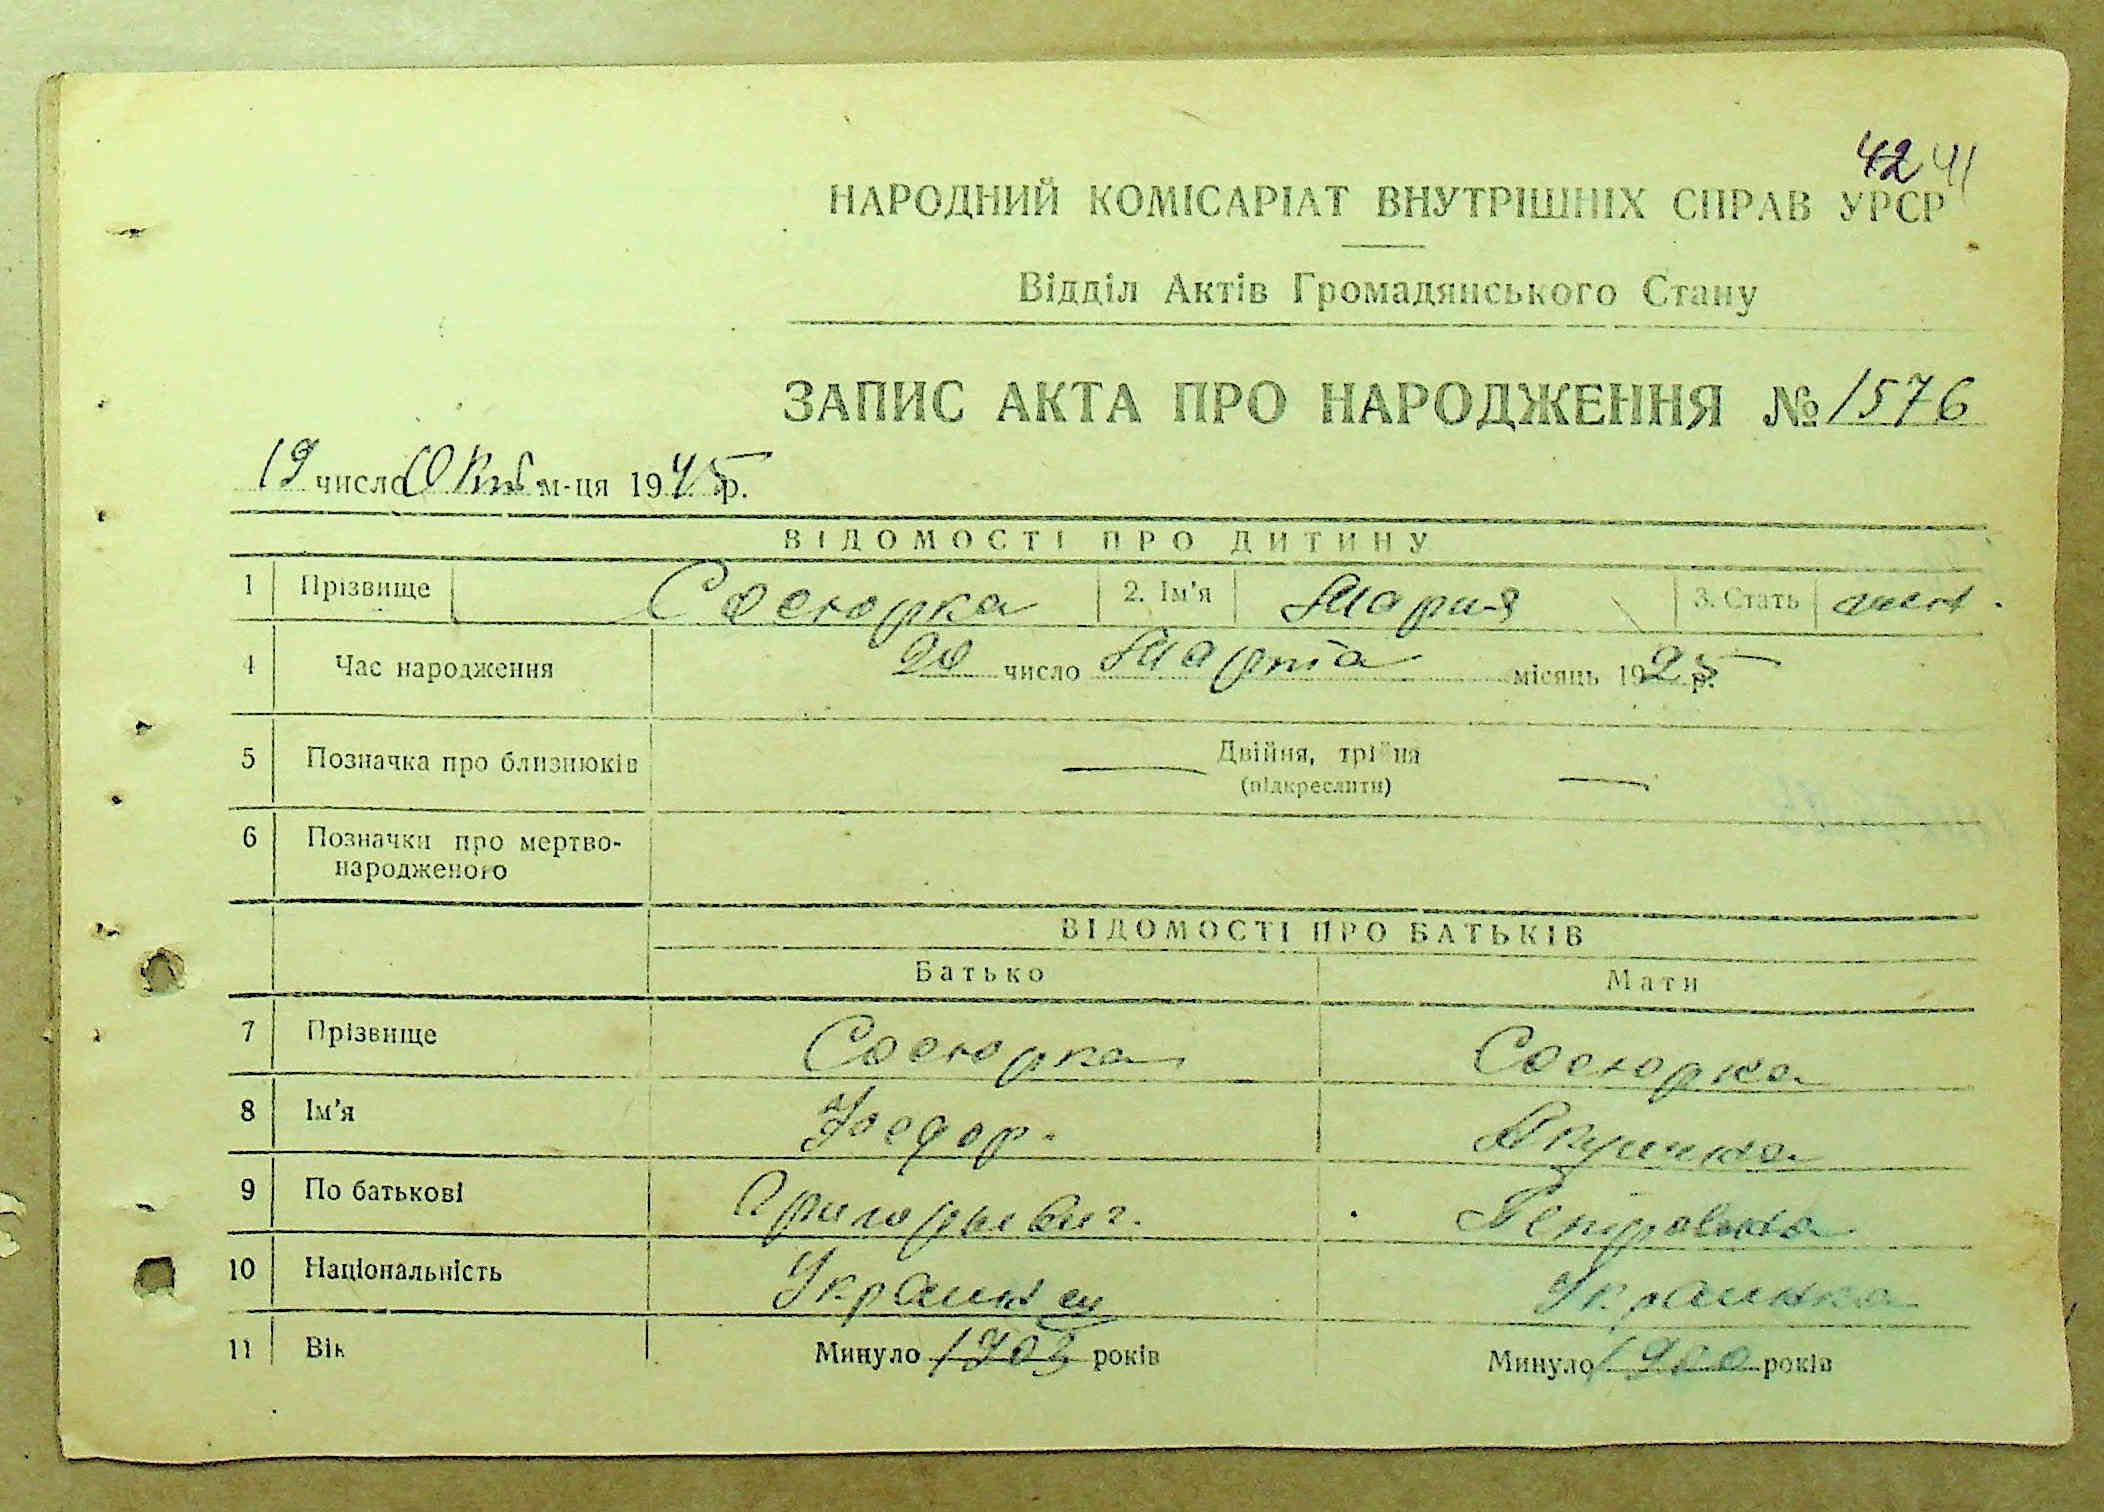 42 41
НАРОДНИЙ КОМІСАРІАТ ВНУТРІШНІХ СПРАВ УРСР
Відділ Актів Громадянського Стану
ЗАПИС АКТА ПРО НАРОДЖЕННЯ № 1576
19 число Окт. м-ця 1945 р.
ВІДОМОСТІ ПРО ДИТИНУ
1 Прізвище Сосюрка 2. Ім'я Мария 3. Стать жен.
4 Час народження 20 число Марта місяць 1925 р.
5 Позначка про близнюків Двійня, трійня
(підкреслити)
6 Позначки про мертво-
народженого
ВІДОМОСТІ ПРО БАТЬКІВ
Батько Мати
7 Прізвище Сосюрка Сосюрка
8 Ім'я Феодор. Акулина
9 По батькові Григорьевич. Петровна
10 Національність Украинец Украинка
11 Вік Минуло 1903 років Минуло 1900 років